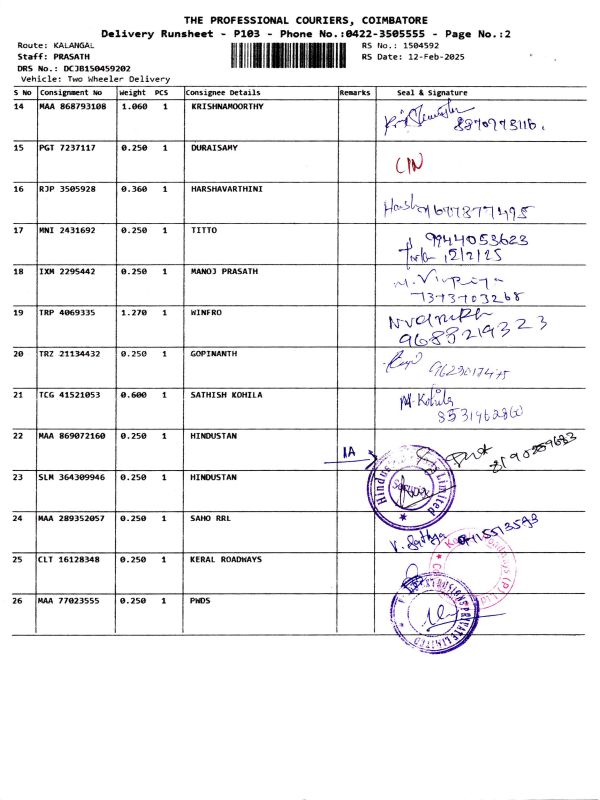 THE PROFESSIONAL COURIERS, COIMBATORE
Delivery Runsheet - P103 - Phone No.:0422-3505555 - Page No.:2
Route: KALANGAL RS No.: 1504592
Staff: PRASATH RS Date: 12-Feb-2025
DRS No.: DCJB150459202
Vehicle: Two Wheeler Delivery
S No Consignment No Weight PCS Consignee Details Remarks Seal & Signature
14 MAA 868793108 1.060 1 KRISHNAMOORTHY
8870973116.
15 PGT 7237117 0.250 1 DURAISAMY
16 RJP 3505928 0.360 1 HARSHAVARTHINI
17 MNI 2431692 0.250 1 TITTO 9944053623
12/2/25
18 IXM 2295442 0.250 1 MANOJ PRASATH
7373703268
19 TRP 4069335 1.270 1 WINFRO
9688219323
20 TRZ 21134432 0.250 1 GOPINANTH
9629017475
21 TCG 41521053 0.600 1 SATHISH KOHILA M. Kohila
22 MAA 869072160 0.250 1 HINDUSTAN
1A
23 SLM 364309946 0.250 1 HINDUSTAN
Limited
24 MAA 289352057 0.250 1 SAHO RRL
V. Sathya
25 CLT 16128348 0.250 1 KERAL ROADWAYS
26 MAA 77023555 0.250 1 PWDS
PRIVATE LIMITED